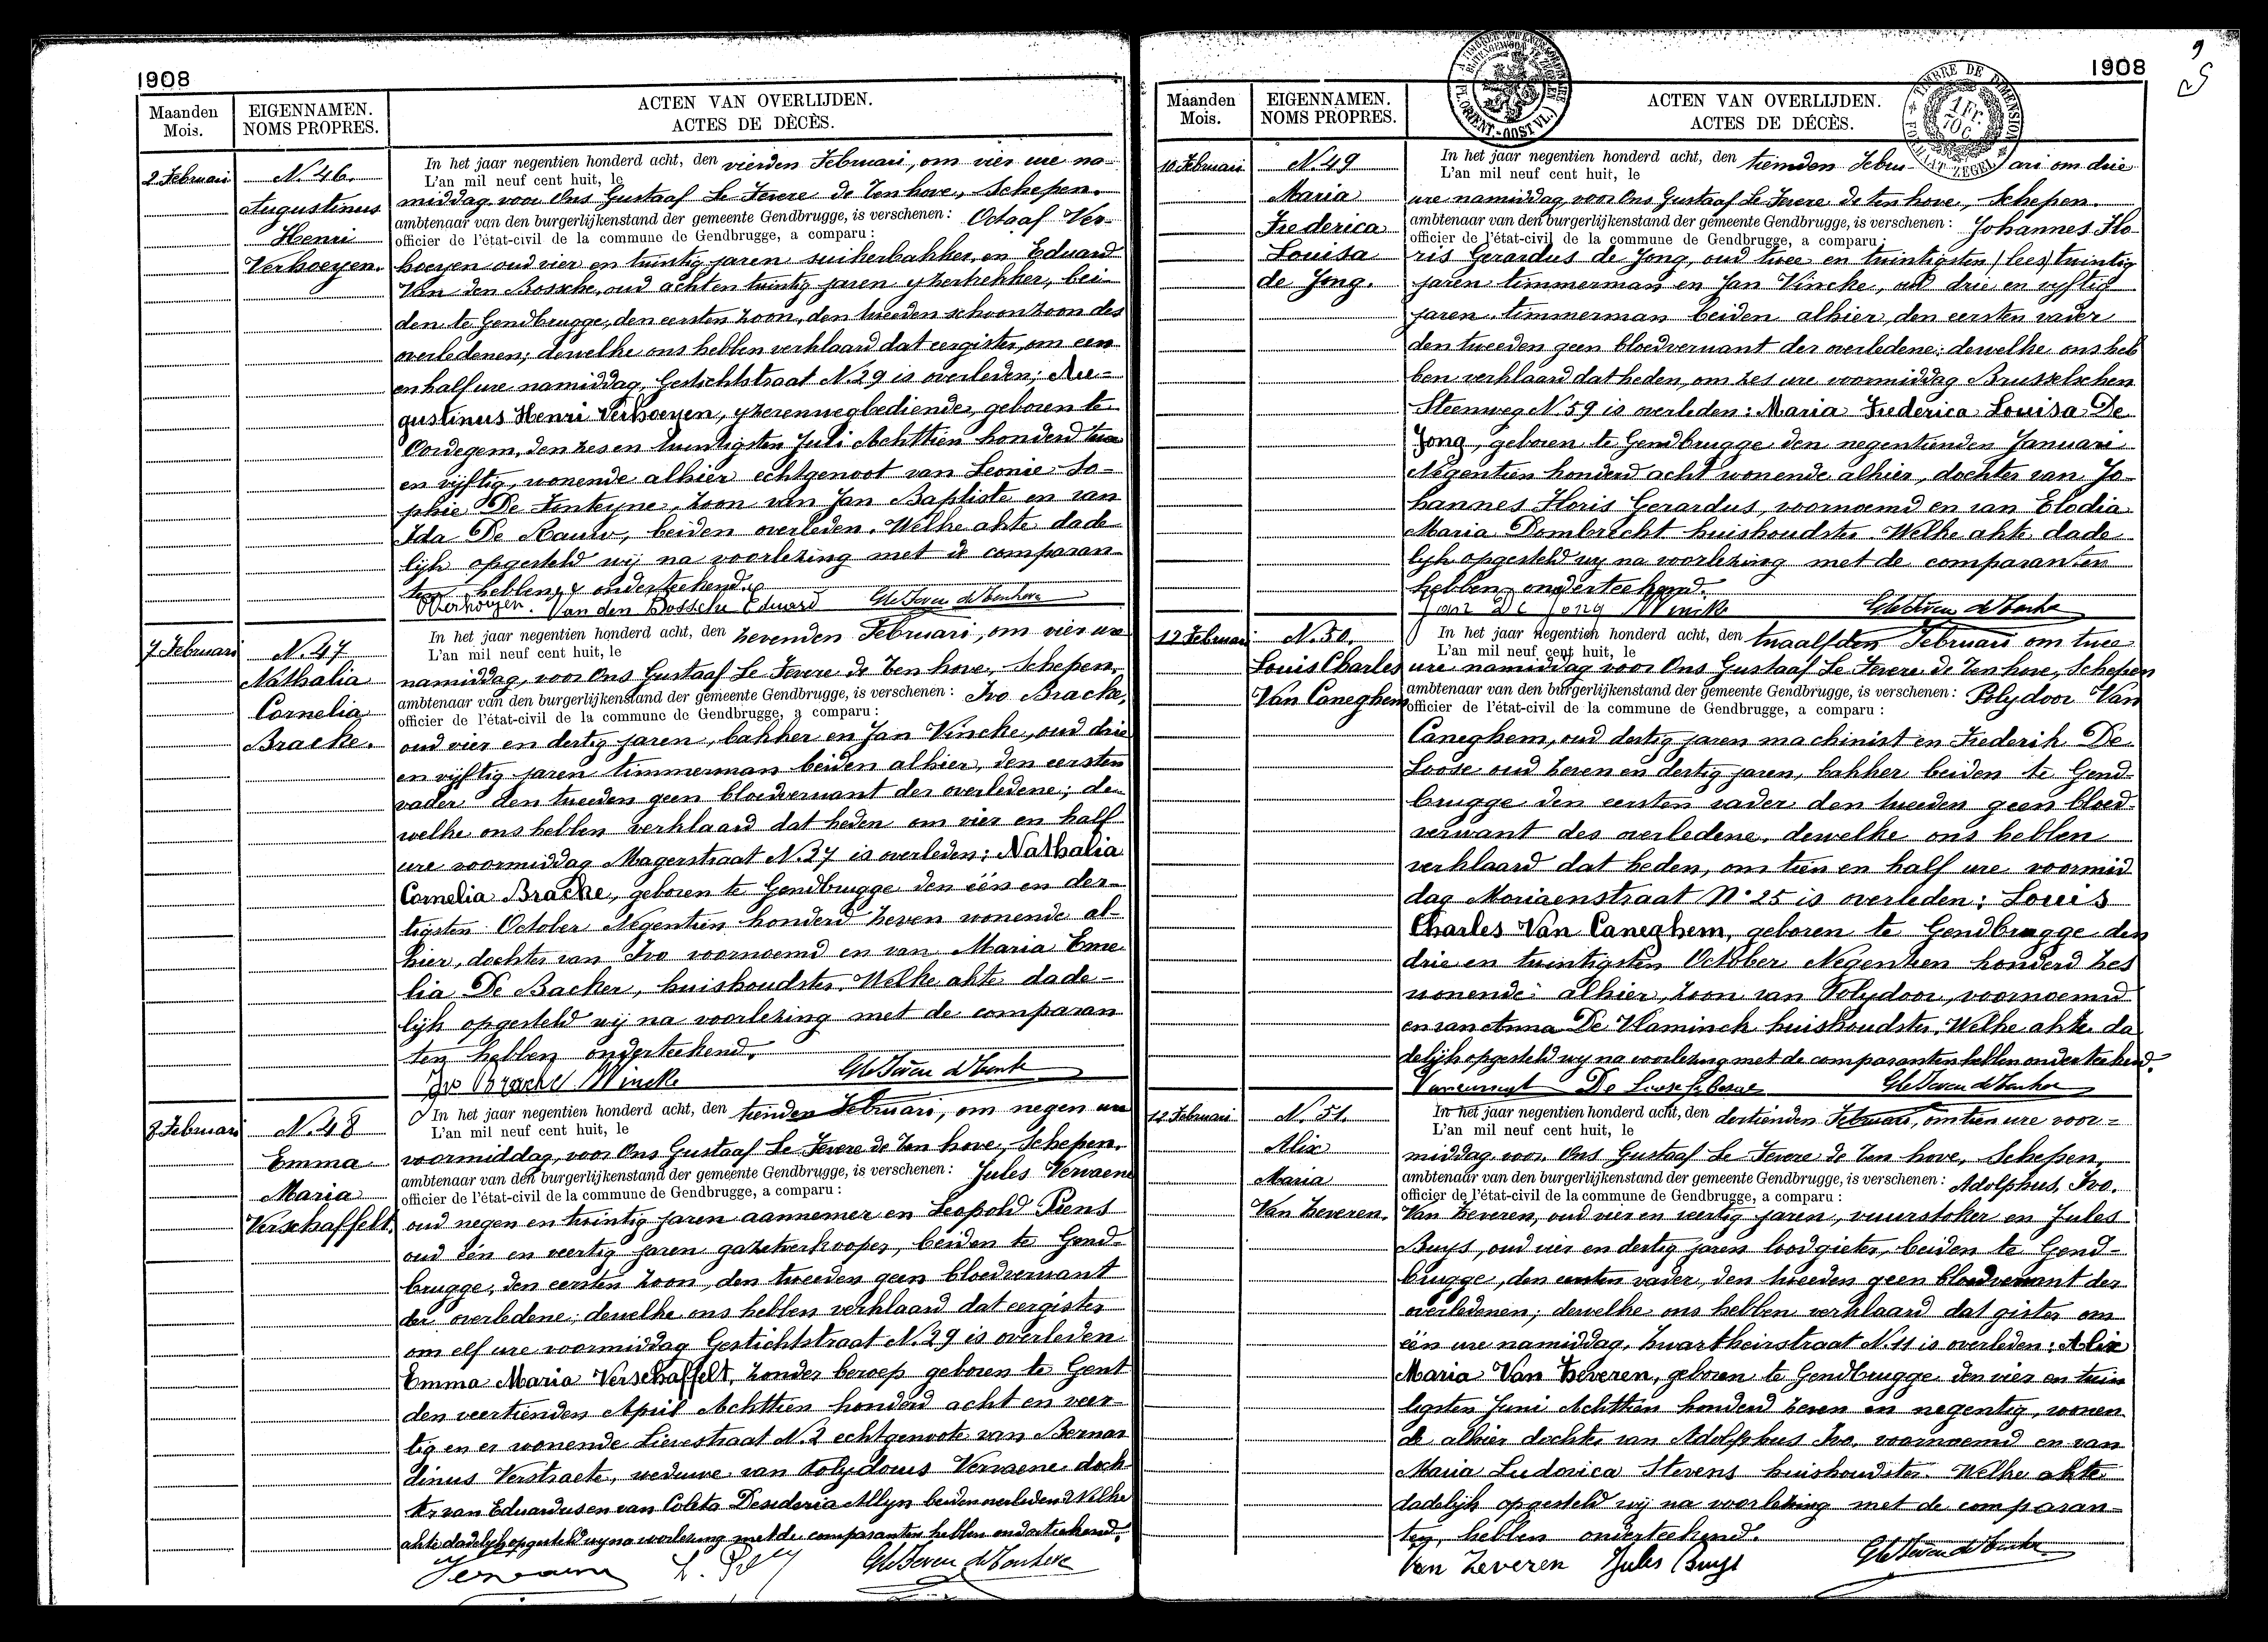 1908
Maanden
Mois.
EIGENNAMEN.
NOMS PROPRES.
ACTEN VAN OVERLIJDEN.
ACTES DE DÉCÈS.
2 Februari
N. 46.
Augustinus
Henri
Verhoeyen.
In het jaar negentien honderd acht, den vierden Februari, om vier ure na-
L'an mil neuf cent huit, le
middag, voor Ons Gustaaf Le Fevere de Ten hove, Schepen.
ambtenaar van den burgerlijkenstand der gemeente Gendbrugge, is verschenen: Octaaf Ver-
officier de l'état-civil de la commune de Gendbrugge, a comparu:
hoeyen oud vier en twintig jaren suikerbakker, en Eduard
Van den Bossche, oud acht en twintig jaren yzertrekker, bei-
den te Gendbrugge, den eersten zoon, den tweeden schoonzoon des
overledenen; dewelke ons hebben verklaard dat eergister, om een
en half ure namiddag, Gestichtstraat N. 29 is overleden; Au-
gustinus Henri Verhoeyen, yzerenwegbediende, geboren te
Oordegem, den zes en twintigsten Juli Achttien honderd twee
en vijftig, wonende alhier echtgenoot van Leonie So-
phie De Fonteyne, zoon van Jan Baptiste en van
Ida De Rauw, beiden overleden. Welke akte dade
lijk opgesteld wij na voorlezing met de comparan-
ten hebben onderteekend.
OVerhoeyen. Van den Bossche Eduard
7 Februari
N. 47
Nathalia
Cornelia
Bracke.
In het jaar negentien honderd acht, den zevenden Februari, om vier ure
L'an mil neuf cent huit, le
namiddag, voor Ons Gustaaf Le Fevere de Ten hove, Schepen,
ambtenaar van den burgerlijkenstand der gemeente Gendbrugge, is verschenen: Ivo Bracke,
officier de l'état-civil de la commune de Gendbrugge, a comparu:
oud vier en dertig jaren, bakker en Jan Vincke, oud drie
en vijftig jaren timmerman beiden alhier, den eersten
vader den tweeden geen bloedverwant der overledene; de
welke ons hebben verklaard dat heden om vier en half
ure voormiddag Magerstraat N. 37 is overleden; Nathalia
Cornelia Bracke, geboren te Gendbrugge den één en der-
tigsten October Negentien honderd zeven wonende al-
hier, dochter van Ivo voornoemd en van Maria Eme
lia De Backer, huishoudster. Welke akte dade-
lijk opgesteld wij na voorlezing met de comparan
ten hebben onderteekend.
Ivo Bracke Vincke
8 Februari
N. 48
Emma
Maria
Verschaffelt.
In het jaar negentien honderd acht, den tienden Februari, om negen ure
L'an mil neuf cent huit, le
voormiddag, voor Ons Gustaaf Le Fevere de Ten hove, Schepen.
ambtenaar van den burgerlijkenstand der gemeente Gendbrugge, is verschenen: Jules Vervaene
officier de l'état-civil de la commune de Gendbrugge, a comparu:
oud negen en twintig jaren aannemer en Leopold Piens
oud één en veertig jaren gazetverkooper, beiden te Gend-
brugge, den eersten zoon, den tweeden geen bloedverwant
der overledene; dewelke ons hebben verklaard dat eergister
om elf ure voormiddag Gestichtstraat N. 29 is overleden
Emma Maria Verschaffelt, zonder beroep geboren te Gent
den veertienden April Achttien honderd acht en veer-
tig en er wonende Lievestraat N. 2 echtgenoote van Bernar
dinus Verstraete, weduwe van Polydorus Vervaene doch
ter van Eduardus en van Coleta Desideria Allyn beiden overleden. Welke
akte dadelijk opgesteld wij na voorlezing met de comparanten hebben onderteekend.
1908
Maanden
Mois.
EIGENNAMEN.
NOMS PROPRES.
ACTEN VAN OVERLIJDEN.
ACTES DE DÉCÈS.
TIMBRE DE DIMENSION
1 Fr.
10 C.
FORMAAT ZEGEL
10 Februari
N. 49
Maria
Frederica
Louisa
de Jong.
In het jaar negentien honderd acht, den tienden Febru ari om drie
L'an mil neuf cent huit, le
ure namiddag, voor Ons Gustaaf Le Fevere de Ten hove, Schepen.
ambtenaar van den burgerlijkenstand der gemeente Gendbrugge, is verschenen: Johannes Flo-
officier de l'état-civil de la commune de Gendbrugge, a comparu:
ris Gerardus de Jong, oud twee en twintigsten (lees) twintig
jaren timmerman en Jan Vincke, oud drie en vyftig
jaren timmerman beiden alhier, den eersten vader
den tweeden geen bloedverwant der overledene; dewelke ons heb
ben verklaard dat heden, om zes ure voormiddag Brusselschen
Steenweg N. 59 is overleden: Maria Frederica Louisa De
Jong, geboren te Gendbrugge den negentienden Januari
Negentien honderd acht wonende alhier, dochter van Jo-
hannes Floris Gerardus, voornoemd en van Elodia
Maria Dombrecht huishoudster. Welke akte dade
lijk opgesteld wij na voorlezing met de comparanten
hebben onderteekend.
De Jong Vincke
12 Februari
N. 50.
Louis Charles
Van Caneghem
In het jaar negentien honderd acht, den twaalfden Februari om twee
L'an mil neuf cent huit, le
ure namiddag voor Ons Gustaaf Le Fevere de Ten hove, Schepen
ambtenaar van den burgerlijkenstand der gemeente Gendbrugge, is verschenen: Polydoor Van
officier de l'état-civil de la commune de Gendbrugge, a comparu:
Caneghem, oud dertig jaren machinist en Frederik De
Loose oud zeven en dertig jaren, bakker beiden te Gend-
brugge den eersten vader den tweeden geen bloed-
verwant des overledene, dewelke ons hebben
verklaard dat heden, om tien en half ure voormid
dag Moriaenstraat N° 25 is overleden: Louis
Charles Van Caneghem, geboren te Gendbrugge den
drie en twintigsten October Negentien honderd zes
wonende alhier, zoon van Polydoor, voornoemd
en van Anna De Vlaminck huishoudster. Welke akte da
delijk opgesteld wij na voorlezing met de comparanten hebben onderteekend.
12 Februari
N. 51.
Alix
Maria
Van Zeveren.
In het jaar negentien honderd acht, den dertienden Februari, om tien ure voor=
L'an mil neuf cent huit, le
middag voor Ons Gustaaf Le Fevere de Ten hove, Schepen,
ambtenaar van den burgerlijkenstand der gemeente Gendbrugge, is verschenen: Adolphus, Ivo.
officier de l'état-civil de la commune de Gendbrugge, a comparu:
Van Zeveren, oud vier en veertig jaren, vuurstoker en Jules
Buys, oud vier en dertig jaren loodgieter, beiden te Gend-
brugge, den eersten vader, den tweeden geen bloedverwant der
overledenen; dewelke ons hebben verklaard dat gister om
één ure namiddag, Zwartheirstraat N. 11 is overleden: Alix
Maria Van Zeveren, geboren te Gendbrugge den vier en twin
tigsten Juni Achttien honderd zeven en negentig, wonen
de alhier dochter van Adolphus Ivo, voornoemd en van
Maria Ludovica Stevens huishoudster. Welke akte
dadelijk opgesteld wij na voorlezing met de comparan-
ten, hebben onderteekend.
Van Zeveren Jules Buys